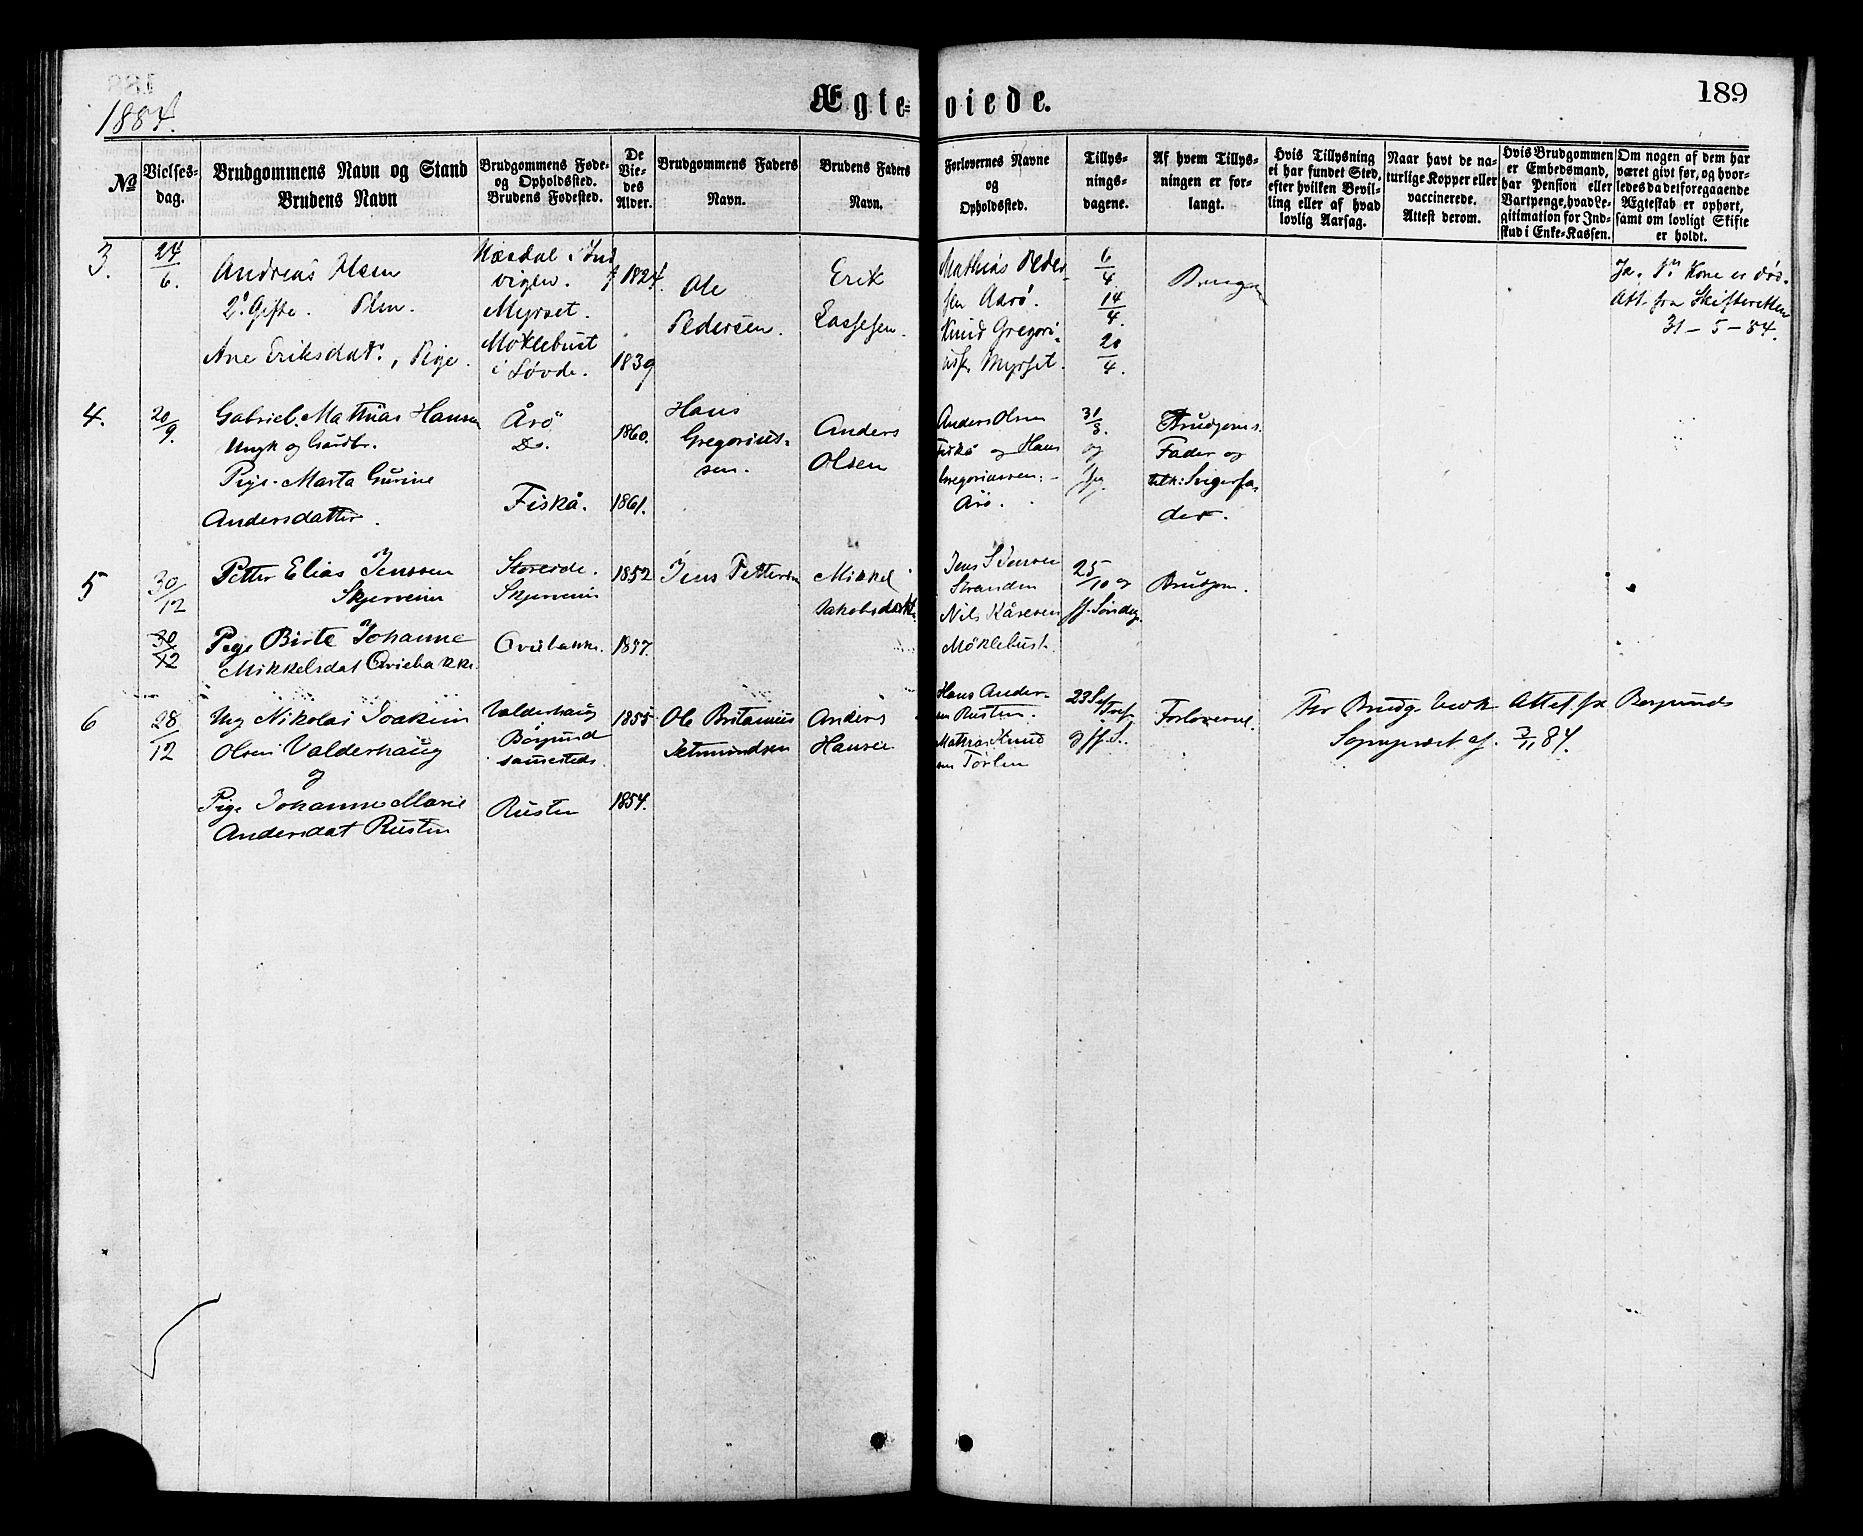 1884.
Ægte-viede.
189
No
Vielses-
dag.
Brudgommens Navn og Stand
Brudens Navn
Brudgommens Føde-
og Opholdssted.
Brudens Fødested.
De
Vie-
des
Alder.
Brudgommens Faders
Navn.
Brudens Faders
Navn.
Forlovernes Navne
og
Opholdssted.
Tillys-
nings-
dagene.
Af hvem Tillys-
ningen er for-
langt.
Hvis Tillysning
ei har fundet Sted,
efter hvilken Bevil-
ling eller af hvad
lovlig Aarsag.
Naar havt de na-
turlige Kopper eller
vaccinerede.
Attest derom.
Hvis Brudgommen
er Embedsmand,
har Pension eller
Vartpenge, hvad Le-
gitimation for Ind-
skud i Enke-Kassen.
Om nogen af dem har
været givt før, og hvor-
ledes da det foregaaende
Ægteskab er ophørt,
samt om lovligt Skifte
er holdt.
3.
24/6.
Andreas Olsen
2d. Gifte.
Ane Eriksdatr., Pige.
Myrset.
Möklebust
i Søvde.
1824.
1839
Ole
Pedersen.
Erik
Lassesen.
Mathias Peder
sen Aarö.
Knud Gregori-
Myrset.
6/4
14/4.
20/4.
Ja. 1ste Kone er död.
Att. fra Skifteretten
31-5-84.
4.
20/9.
Gabriel Mathias Hansen
Ungk og Gaardbr.
Pige Marta Gurine
Andersdatter.
Årö
Do.
Fiskå.
1860.
1861.
Hans
Gregorius-
sen.
Anders
Olsen
Anders Olsen
Fiskå og Hans
Gregoriussen
Årö.
31/8.
og
Brudgoms.
Fader og
Svigerfa-
der.
5
30/12
Petter Elias Jenssen
Skjerveim
Pige Birte Johanne
Mikkelsdat Qviebakke.
Skjerveim
Qviebakke.
1852
1857.
Jens Pettersen
Mikkel
Jens S Jensen
Stranden
Nils Kåresen
Möklebust.
25/10 og
ff. Söndag.
Brudgom.
30/12
6
28/12
Ung Nikolai Joakim
Olsen Valderhaug
og
Pige Johanne Marie
Andersdat Rusten
Valderhaug
Borgund
sammesteds.
Rusten
1855
1854.
Ole Britanius
Jetmundsen
Anders
Hansen
Hans Ander-
sen Rusten.
Mathias Knud
sen Törlen
Forloverne
For Brudg. Attest fra Borgunds
Sogneprest af 3/11 84.